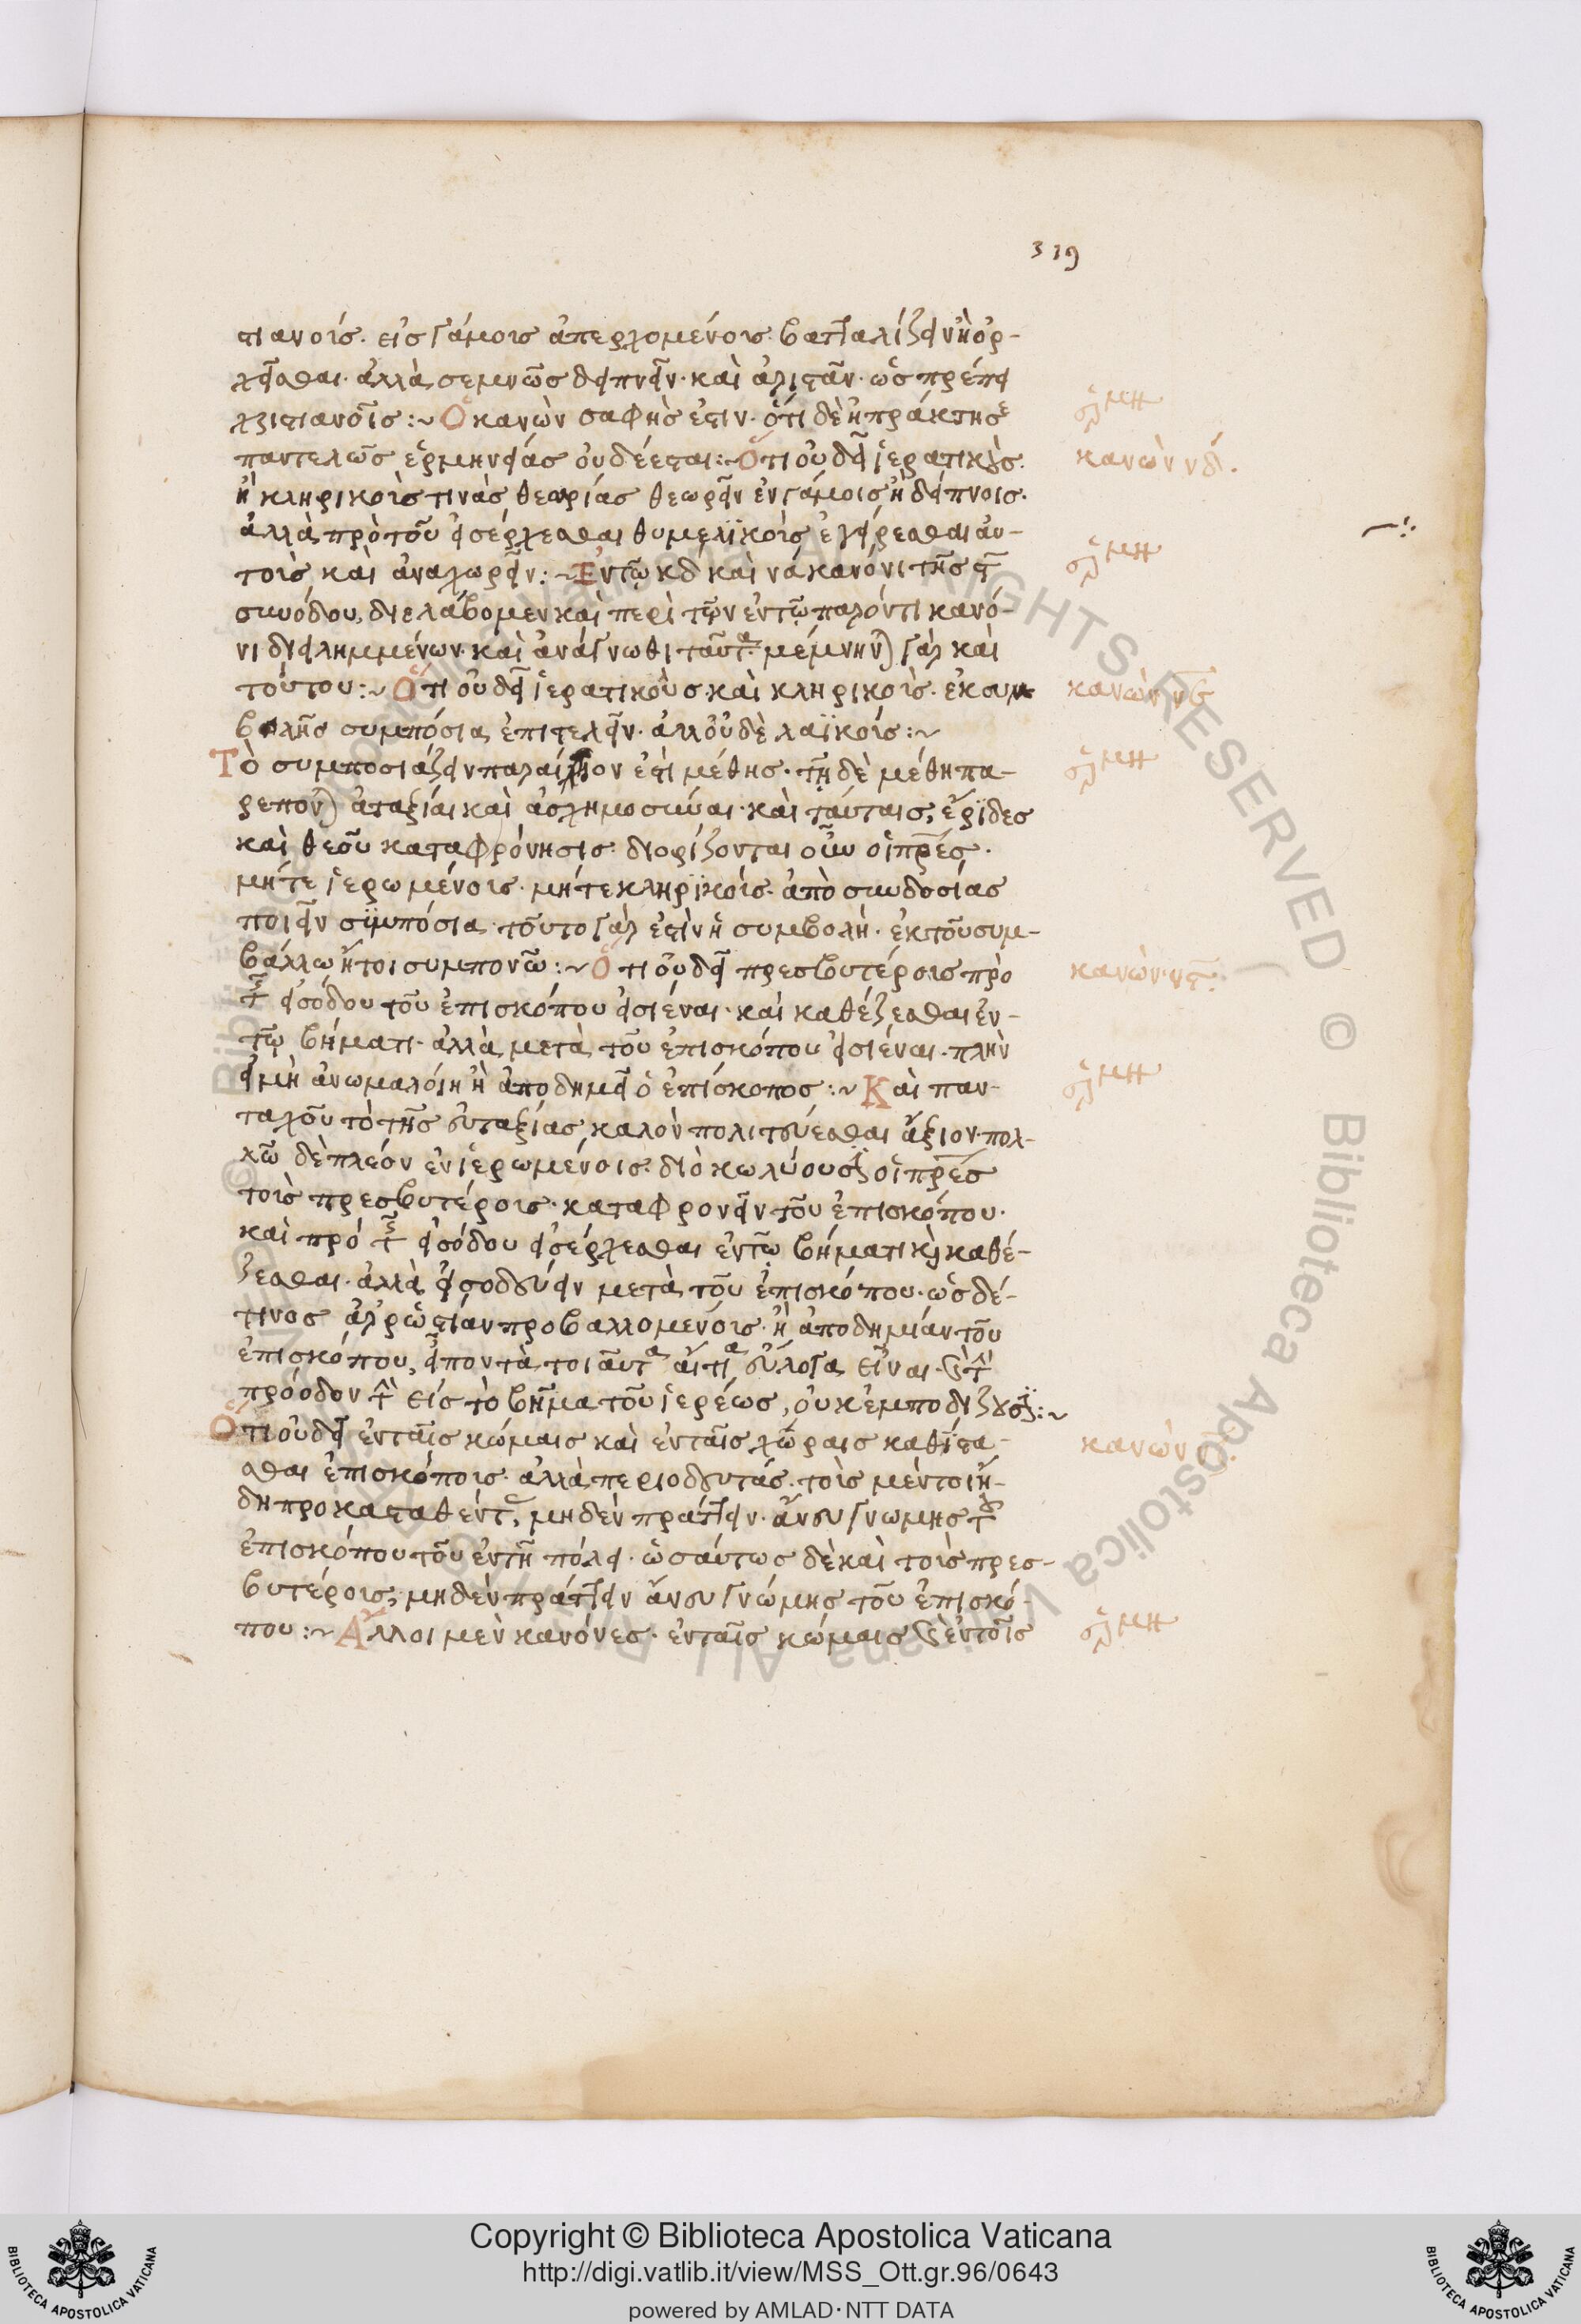 319
στιανοὺς εἰς γάμους ἀπερχομένους βατταλίζειν ἢ ὀρ-
χεῖσθαι· ἀλλὰ σεμνῶς δειπνεῖν· καὶ ἀριστᾶν· ὡς πρέπει
χριστιανοῖς :~ Ὁ κανὼν σαφής ἐστιν· ὅτι δὲ ἡ πράκτησε
ἑρμη
παντελῶς ἑρμηνείας οὐ δέεται :~ Ὅτι οὐ δεῖ ἱερατικοὺς·
κανὼν νδ.
ἢ κληρικοὺς τινὰς θεωρίας θεωρεῖν ἐν γάμοις ἢ δείπνοις·
ἀλλὰ πρὸ τοῦ εἰσέρχεσθαι θυμελικοὺς ἐγείρεσθαι αὐ-
τοὺς καὶ ἀναχωρεῖν :~ Ἐν τῷ κδ καὶ να κανόνι τῆς ς
ἑρμη
συνόδου, διελάβομεν καὶ περὶ τῶν ἐν τῷ παρόντι κανό-
νι διειλημμένων· καὶ ἀνάγνωθι ταῦτα· μέμνηνται γὰρ καὶ
τούτου :~ Ὅτι οὐ δεῖ ἱερατικοὺς καὶ κληρικοὺς· ἐκ συμ
κανὼν νε
βολῆς συμπόσια ἐπιτελεῖν· ἀλλ' οὐδὲ λαϊκούς :~
Τὸ συμποσιάζειν παραίτιον ἐστὶ μέθης· τῇ δὲ μέθῃ πα-
ἑρμη
ρέπονται ἀταξίαι καὶ ἀσχημοσύναι· καὶ ταύταις, ἔριδες
καὶ θεοῦ καταφρόνησις· διορίζονται οὖν οἱ πρες·
μήτε ἱερωμένους· μήτε κληρικοὺς· ἀπὸ συνδοσίας
ποιεῖν συμπόσια· τοῦτο γὰρ ἐστὶν ἡ συμβολὴ· ἐκ τοῦ συμ-
βάλλω ἤτοι συμπονῶ :~ Ὅτι οὐ δεῖ πρεσβυτέρους πρὸ
κανὼν νς.
τῆς εἰσόδου τοῦ ἐπισκόπου εἰσιέναι· καὶ καθέζεσθαι ἐν-
τῷ βήματι· ἀλλὰ μετὰ τοῦ ἐπισκόπου εἰσιέναι· πλὴν
εἰ μὴ ἀνωμαλοίη ἢ ἀποδημεῖ ὁ ἐπίσκοπος :~ Καὶ παν-
ἑρμη
ταχοῦ τὸ τῆς εὐταξίας καλὸν πολιτεύεσθαι ἄξιον· πολ-
λῶ δὲ πλέον ἐν ἱερωμένοις· διὸ κωλύουσιν οἱ πρες
τοὺς πρεσβυτέρους· καταφρονεῖν τοῦ ἐπισκόπου·
καὶ πρὸ τῆς εἰσόδου εἰσέρχεσθαι ἐν τῷ βήματι καὶ καθέ-
ζεσθαι· ἀλλὰ εἰσοδεύειν μετὰ τοῦ ἐπισκόπου· ὡς δέ-
τινος ἀρρωστίαν προβαλλομένους· ἢ ἀποδημίαν τοῦ
ἐπισκόπου, εἶπον τὰ τοιαῦτα αἴτια εὔλογα εἶναι· καὶ τὴν
πρόοδον τὴν εἰς τὸ βῆμα τοῦ ἱερέως, οὐκ ἐμποδίζουσιν :~
Ὅτι οὐ δεῖ ἐν ταῖς κώμαις καὶ ἐν ταῖς χώραις καθίστα-
κανὼν
σθαι ἐπισκόπους· ἀλλὰ περιοδευτάς· τοὺς μέντοι ἤ-
δη προκατασταθέντας, μηδὲν πράττειν· ἄνευ γνώμης τοῦ
ἐπισκόπου τοῦ ἐν τῇ πόλει· ὡσαύτως δὲ καὶ τοὺς πρεσ-
βυτέρους, μηδὲν πράττειν ἄνευ γνώμης τοῦ ἐπισκό-
που :~ Ἄλλοι μὲν κανόνες· ἐν ταῖς κώμαις καὶ ἐν τοῖς
ἑρμη
© Biblioteca Apostolica Vaticana ALL RIGHTS RESERVED © Biblioteca Apostolica Vaticana ALL RIGHTS RESERVED
Copyright © Biblioteca Apostolica Vaticana
http://digi.vatlib.it/view/MSS_Ott.gr.96/0643
powered by AMLAD·NTT DATA
BIBLIOTECA APOSTOLICA VATICANA
BIBLIOTECA APOSTOLICA VATICANA